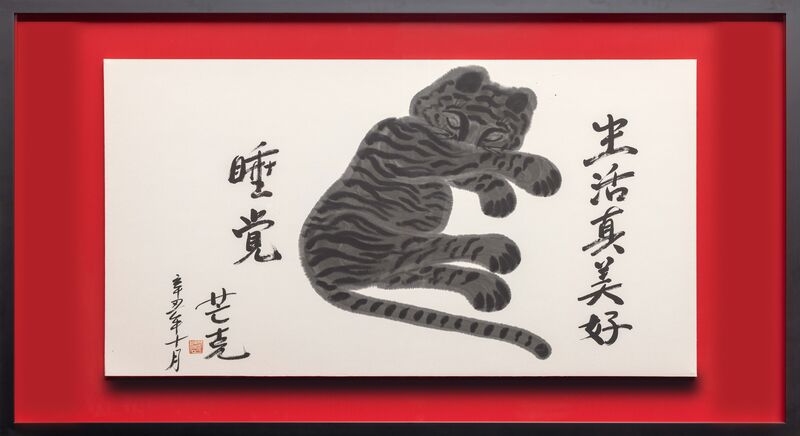 生活真美好
睡觉
芒克
辛丑年十月